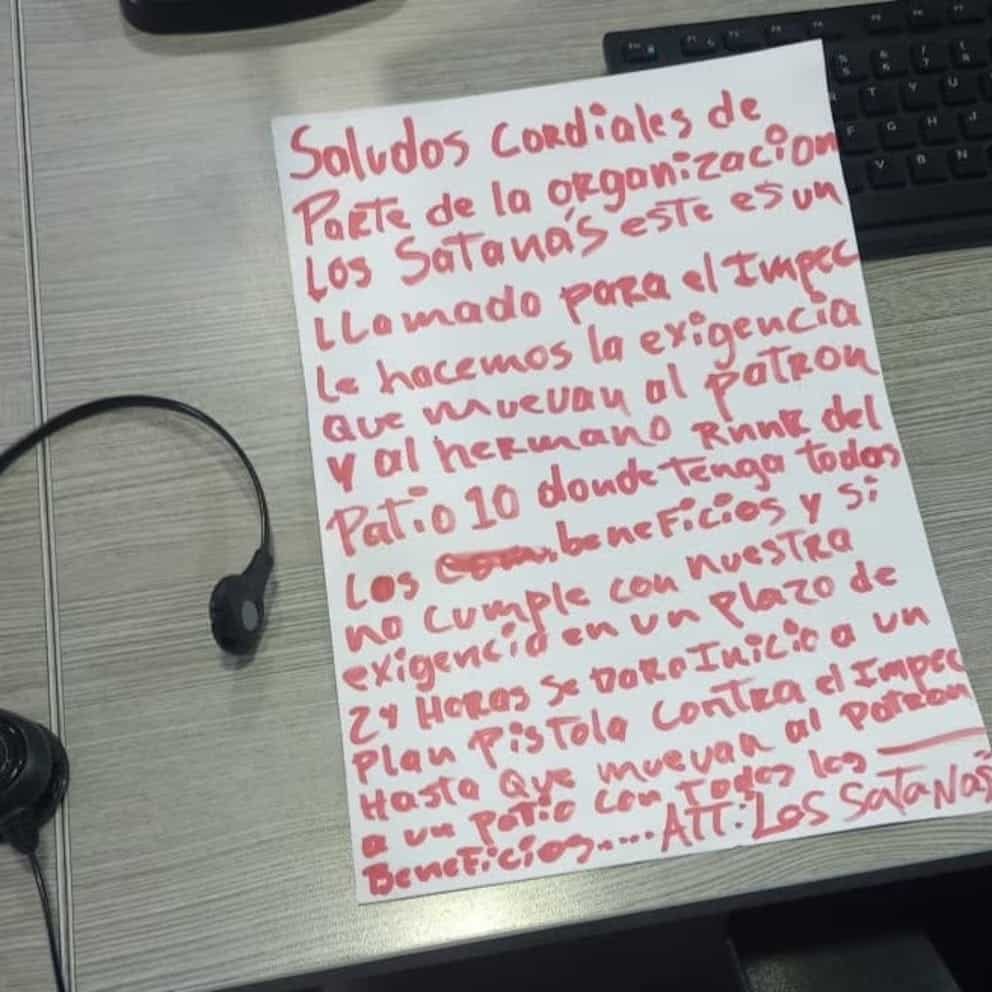 Saludos Cordiales de
Parte de la organizacion
Los Satanás este es un
LLamado para el Impec
le hacemos la exigencia
que muevan al patron
y al hermano Rnnk del
Patio 10 donde tenga todos
los beneficios y si
no cumple con nuestra
exigencia en un plazo de
24 Horas se Dara Inicio a un
Plan Pistola contra el Impec
Hasta Que muevan al Patron
a un Patio con todos los
Beneficios.... ATT: Los Satanás